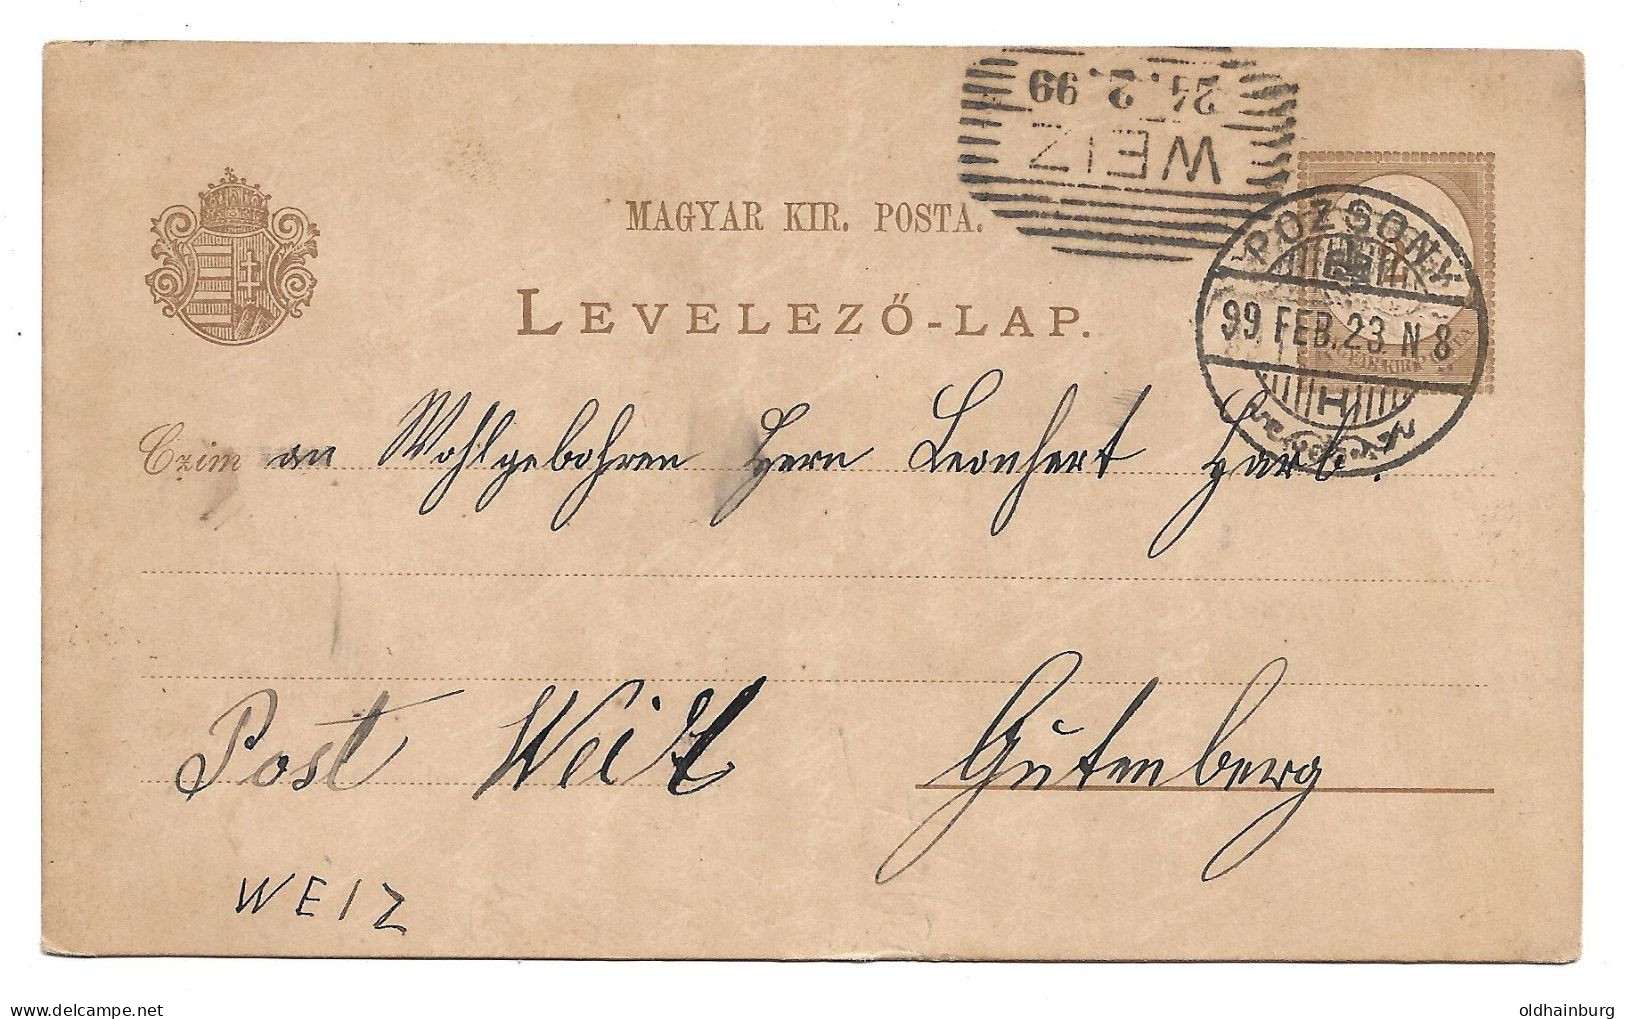 24.2.99
WEIZ
MAGYAR KIR. POSTA.
POZSONY
99 FEB. 23. N 8
H
LEVELEZŐ-LAP.
Czim an Wohlgebohren Herrn Leonhert Harb.
Post Weiz Gutenberg
WEIZ
https://www.delcampe.net
oldhainburg